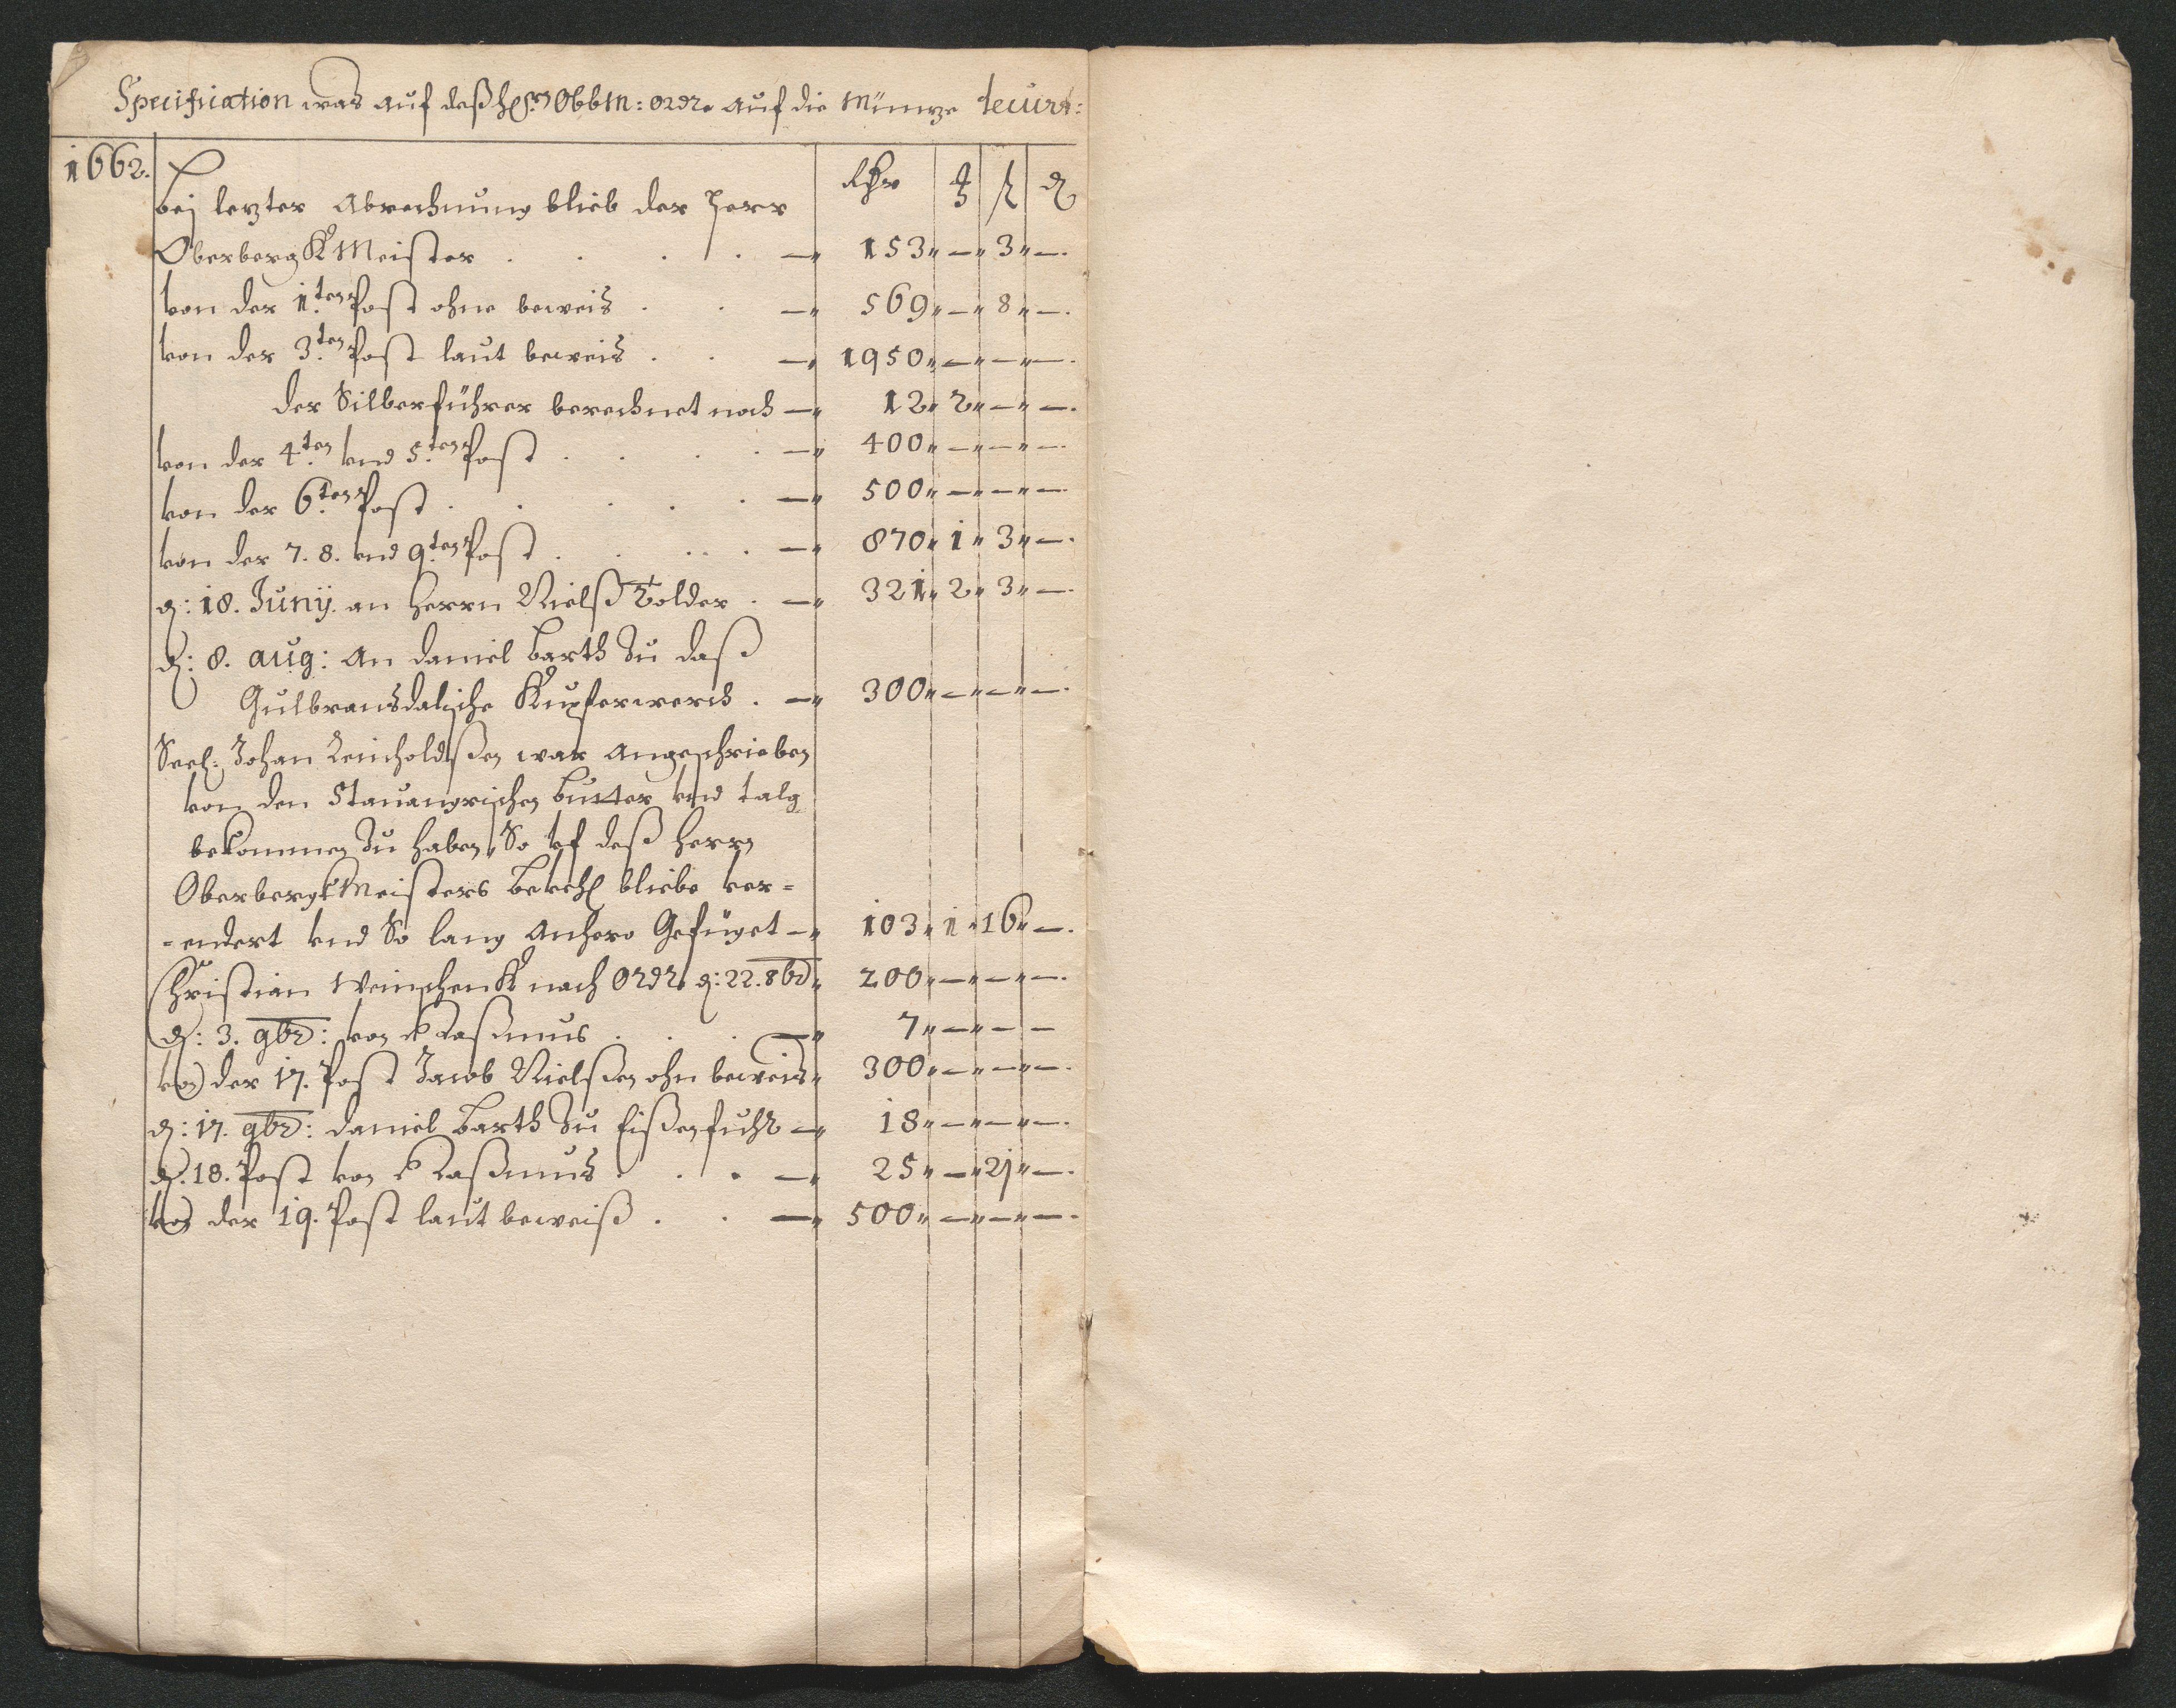 Specification was auf deß H. Obbm: ordr. auf die Müntze
1662.
Rthr ₰
bej letzter Abrechnung blieb der Herr
OberbergKMeister . . . . — 153 " — " 3 " —.
von der 1.ten Post ohne beweis . . — 569 " — " 8 " —.
von der 3.ten Post laut beweis . . — 1950 " — " — " —.
der Silberführer berechnet noch — 12 " 2 " — " —.
von der 4.ten vnd 5.ten Post . . . . — 400 " — " — " —.
von der 6.ten Post . . . . . — 500 " — " — " —.
von der 7. 8. vnd 9.ten Post . . . . . — 870 " 1 " 3 " —.
d: 18. Junij. an Herrn Nielß Tolder . — 321 " 2 " 3 " —.
d: 8. aug: an Daniel Barth zu daß
Gulbransdalische Kupferwerck . — 300 " — " — " —.
Seel: Johan Reinholdßen war angeschrieben
von den Stauangrischen butter vnd talg
bekommen zu haben, So vf deß Herrn
OberbergkMeisters bliebe ver=
=endert vnd So lang anhero Gefüget — 103 " 1 " 16 " —.
Christian WeinschenK nach Ordr. d: 22. 8br " 200 " — " — " —.
d: 3. 9br: von Raßmus . . . — 7 " — " — —
von der 17. Post Jacob Nielßen ohn beweis " 300 " — " — " —.
d: 17. 9br: Daniel Barth zu Eißenfuhr — 18 " — " — " —.
d. 18. Post von Raßmus . . . — 25 " — " 21 " —.
von der 19. Post laut beweiß . . — 500 " — " — " —.